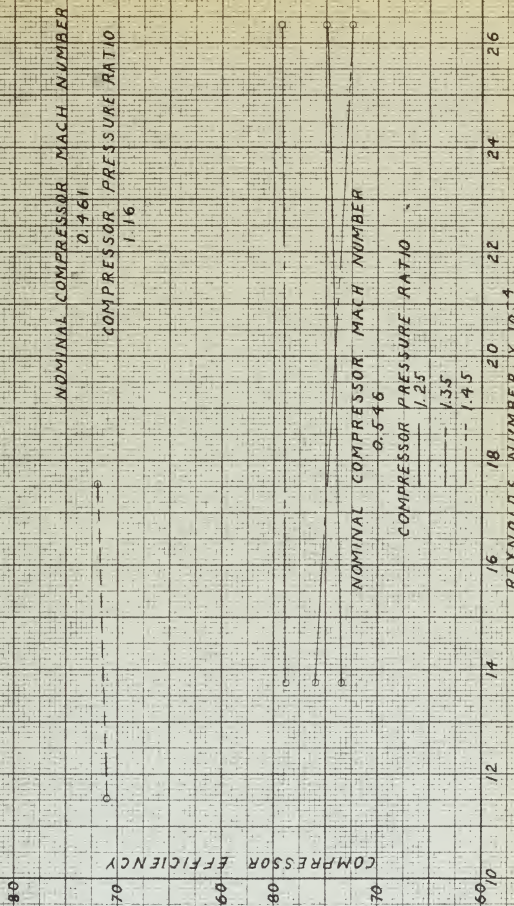 NOMINAL COMPRESSOR MACH NUMBER
0.461
COMPRESSOR PRESSURE RATIO
1.16
NOMINAL COMPRESSOR MACH NUMBER
0.546
COMPRESSOR PRESSURE RATIO
1.25
1.35
1.45
COMPRESSOR EFFICIENCY
80
70
60
70
60
10 12 14 16 18 20 22 24 26
REYNOLDS NUMBER X 10-4